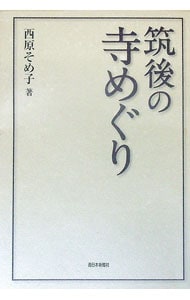 筑後の
寺めぐり
西原そめ子 著
西日本新聞社